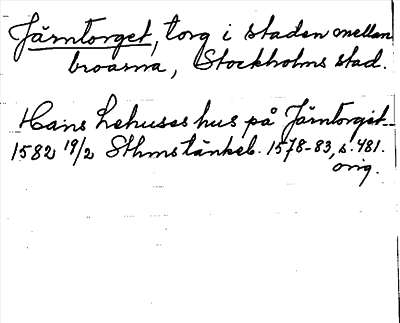 Järntorget, torg i staden mellan
broarna, Stockholms stad.
Hans Lehuses hus på Järntorget.
1582 19/2 Sthms tänkeb. 1578-83, s. 481.
orig.